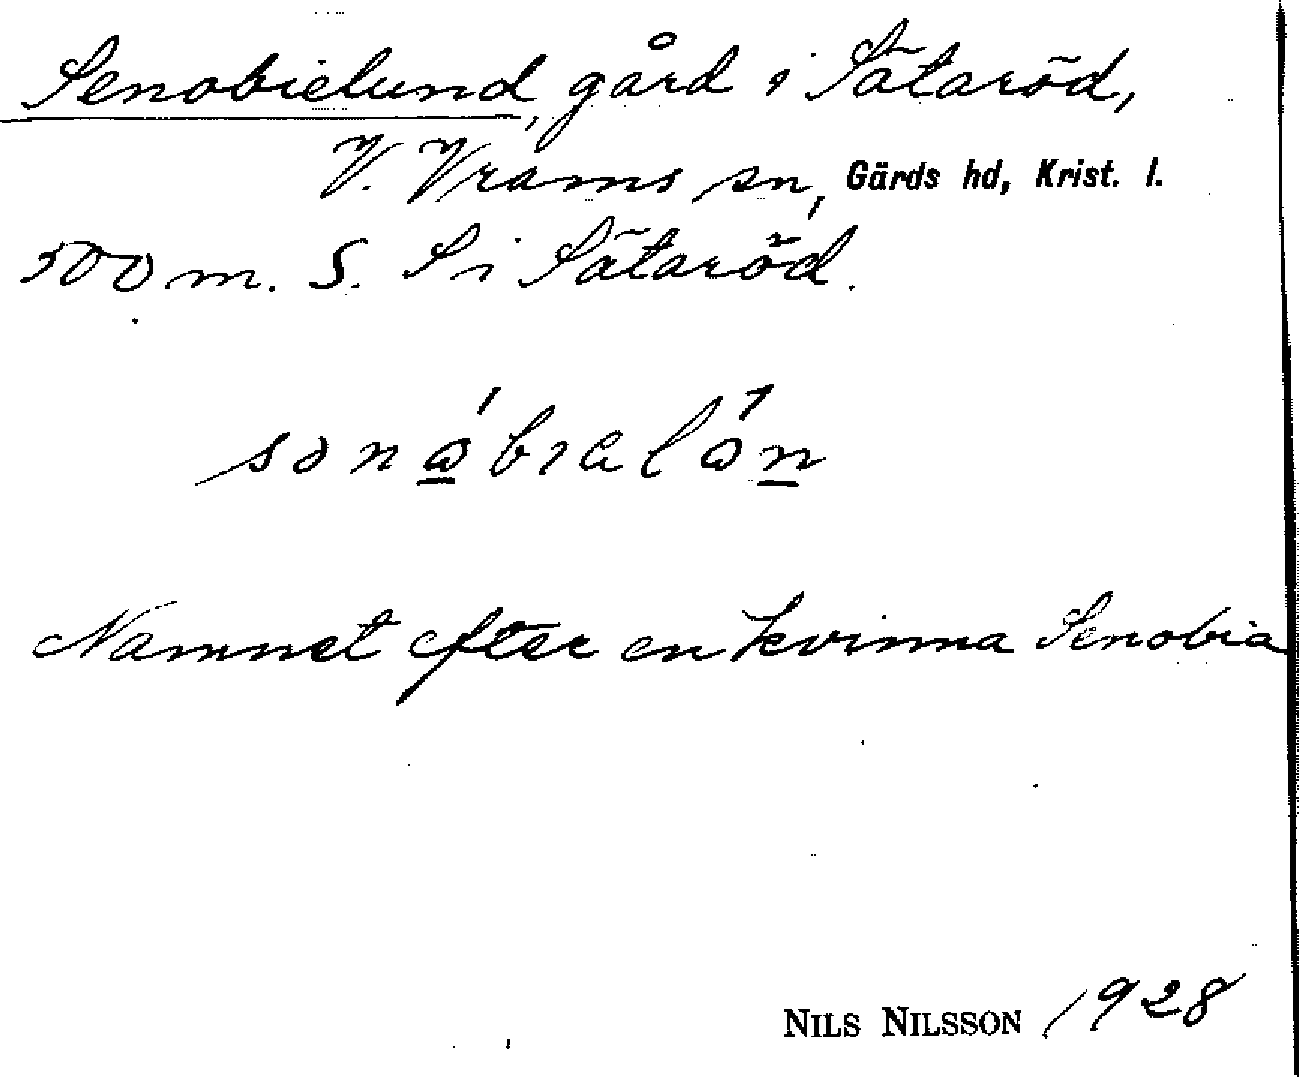 Senobielund, gård i Sätaröd,
V. Vrams sn, Gärds hd, Krist. l.
500 m. S. S i Sätaröd.
Namnet efter en kvinna Senobia
NILS NILSSON 1928